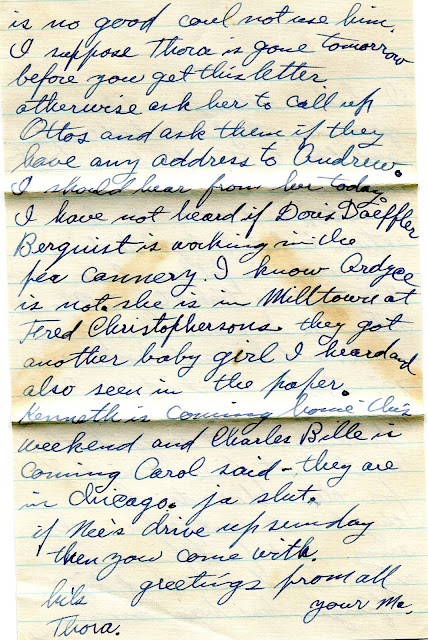 is no good coul not use him.
I suppose Thora is gone tomorrow
before you get this letter
otherwise ask her to call up
Ottos and ask them if they
have any address to Andrew.
I should hear from her today.
I have not heard if Doris Doeffler
Berquist is working in the
pea cannery. I know Ardyce
is not. she is in Milltown at
Fred Christophersons. they got
another baby girl I heard and
also seen in the paper.
Kenneth is coming home this
weekend and Charles Bille is
coming Carol said - they are
in Chicago. ja slut.
if Nee's drive up sunday
then you come with.
greetings from all
hils your Ma.
Thora.